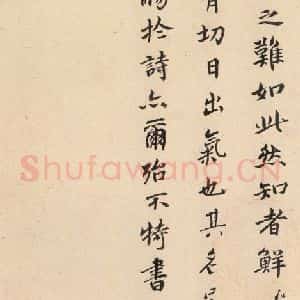 之難如此然知者鮮
切日出氣也其名
於詩亦爾殆不特書
Shufawang.CN